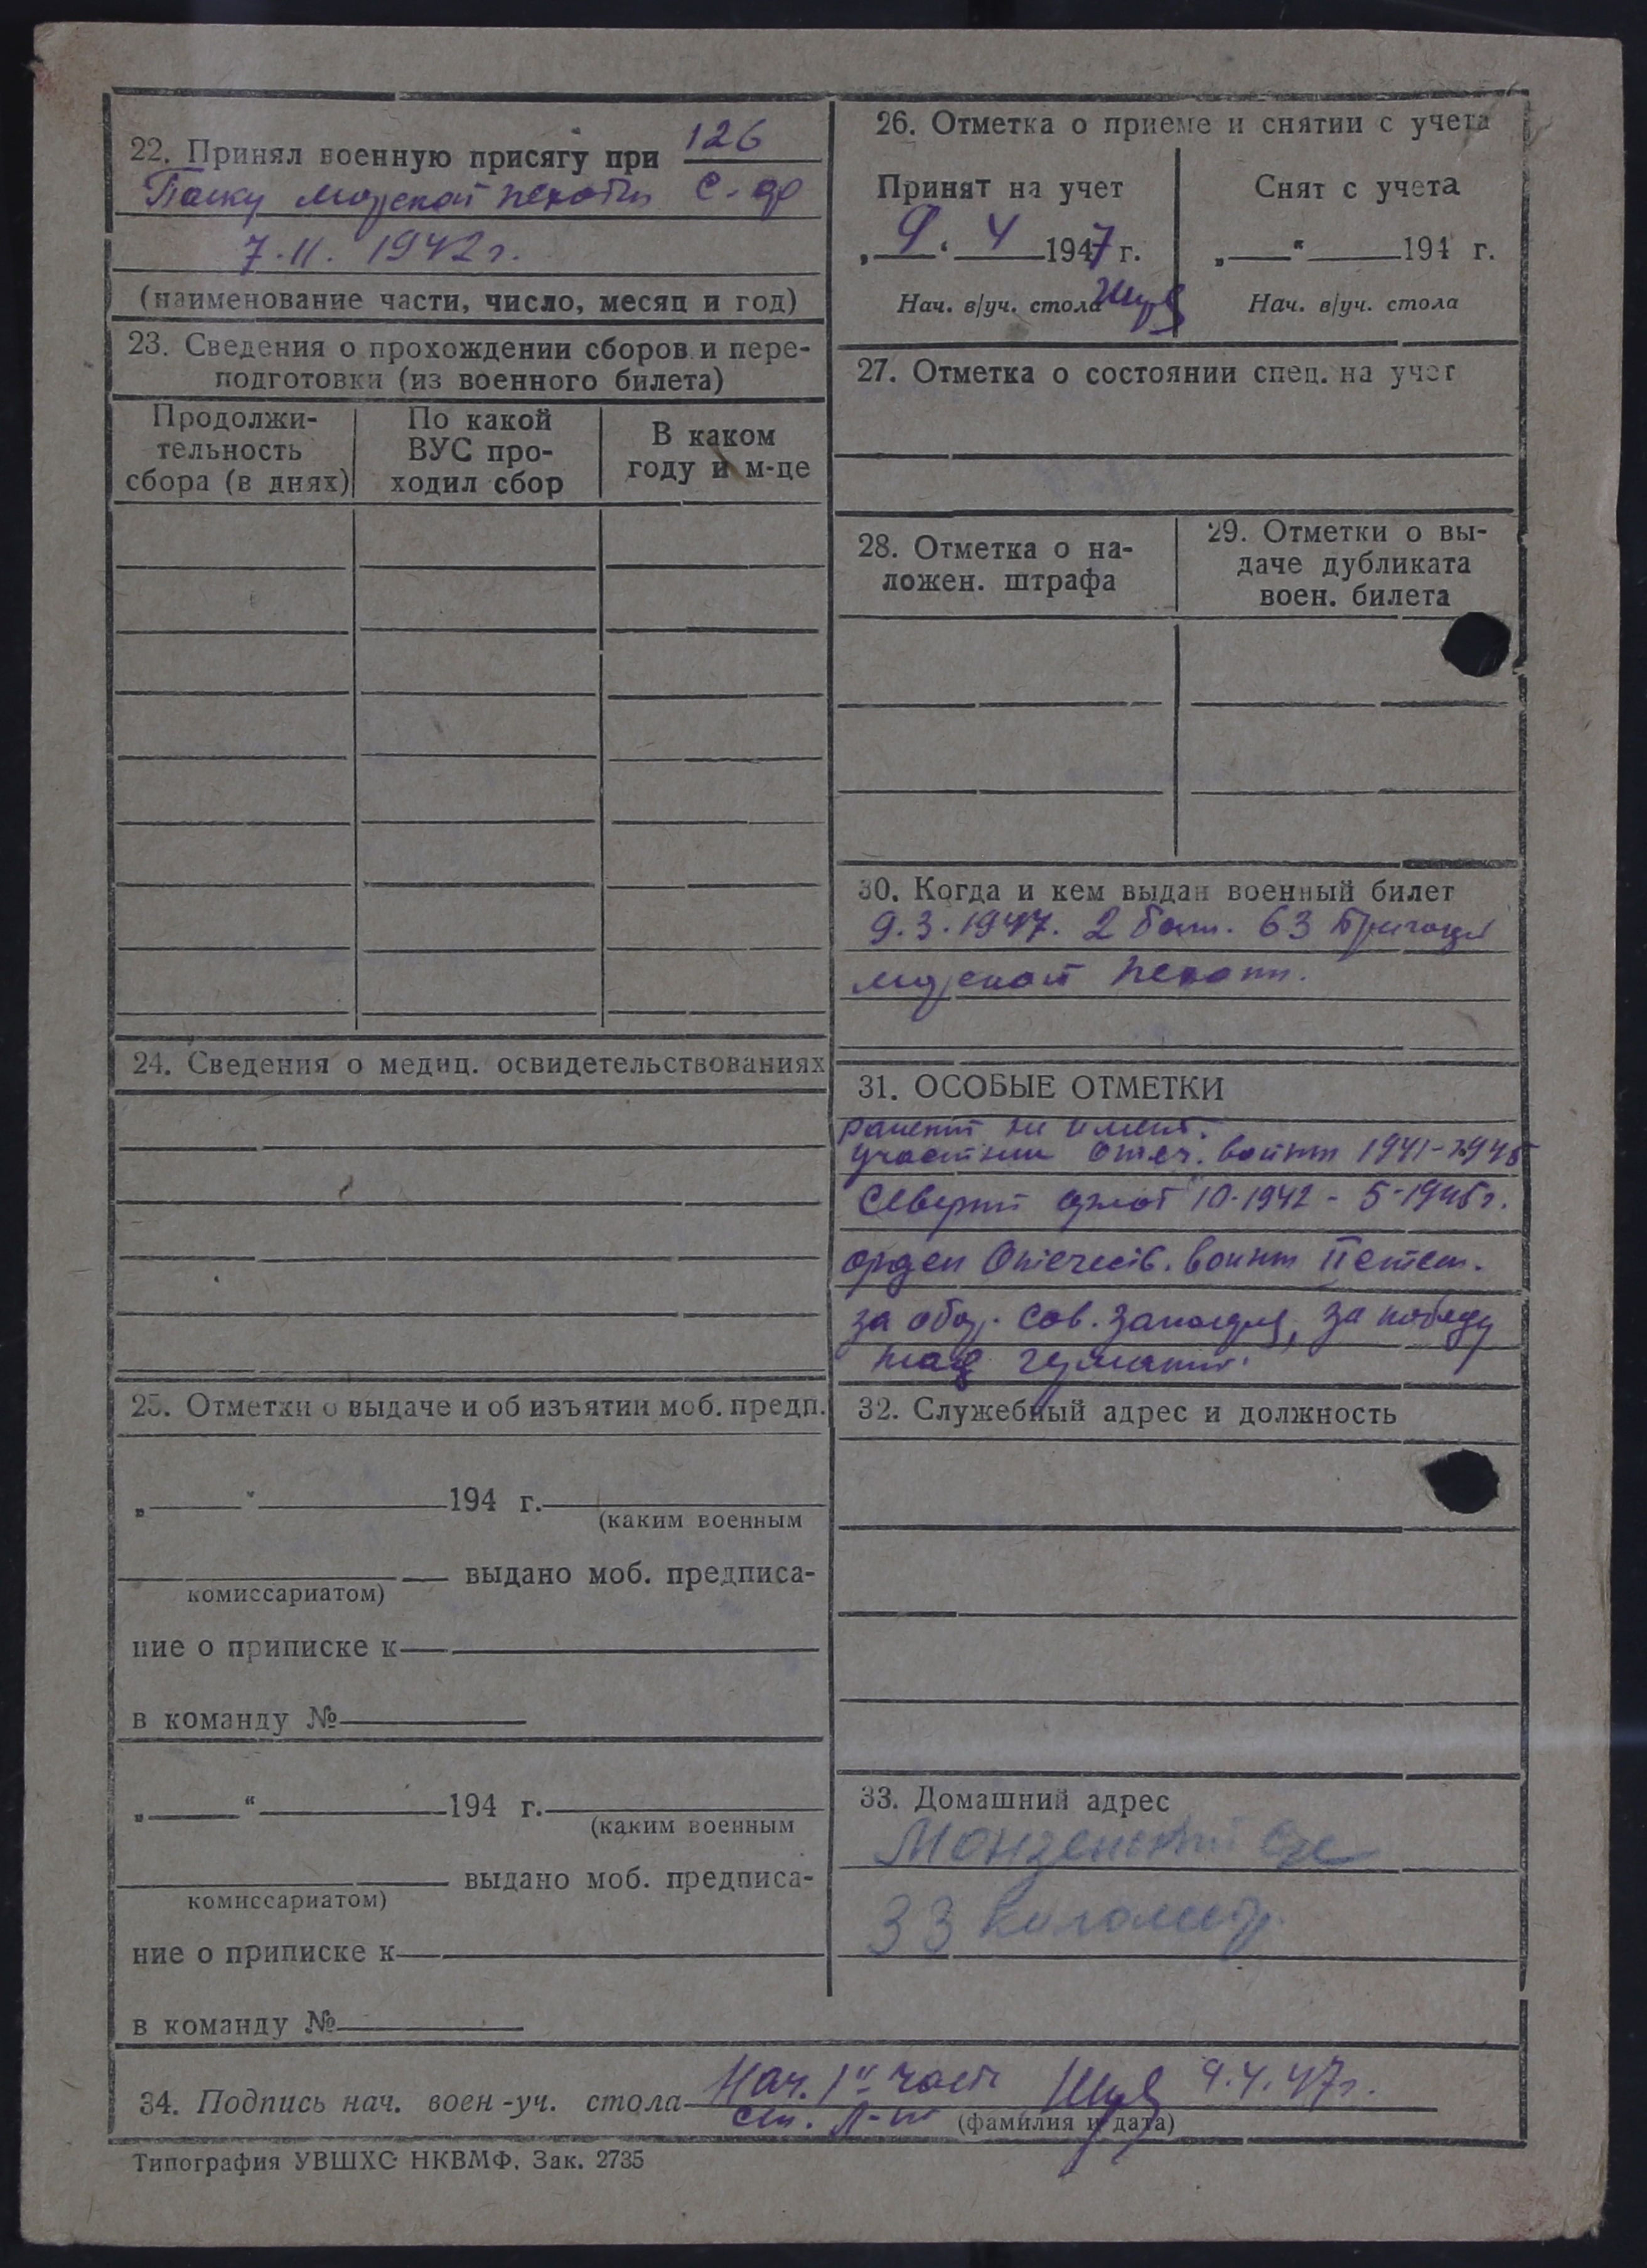 22. Принял военную присягу при 126
Полку морской пехоты С. ф
7.11. 1942г.
(наименование части, число, месяц и год)
23. Сведения о прохождении сборов и пере-
подготовки (из военного билета)
Продолжи-
тельность
сбора (в днях)
По какой
ВУС про-
ходил сбор
В каком
году и м-це
24. Сведения о медиц. освидетельствованиях
25. Отметки о выдаче и об изъятии моб. предп.
„ “ 194 г.
(каким военным
выдано моб. предписа-
комиссариатом)
ние о приписке к
в команду №
„ “ 194 г.
(каким военным
выдано моб. предписа-
комиссариатом)
ние о приписке к
в команду №
26. Отметка о приеме и снятии с учета
Принят на учет
„9“ 4 1947 г.
Нач. в/уч. стола
Снят с учета
„ “ 194 г.
Нач. в/уч. стола
27. Отметка о состоянии спец. на учет
28. Отметка о на-
ложен. штрафа
29. Отметки о вы-
даче дубликата
воен. билета
30. Когда и кем выдан военный билет
9.3.1947. 2 бат. 63 бригады
морской пехоты.
31. ОСОБЫЕ ОТМЕТКИ
ранений не имеет.
участник Отеч. войны 1941-1945
Северный флот 10-1942 - 5-1945г.
орден Отечеств. войны II степ.
за обор. Сов. Заполярья, за победу
над германией.
32. Служебный адрес и должность
33. Домашний адрес
33 километр.
34. Подпись нач. воен-уч. стола Нач. 1й части 9.4.47г.
ст. л-т (фамилия и дата)
Типография УВШХС НКВМФ. Зак. 2735